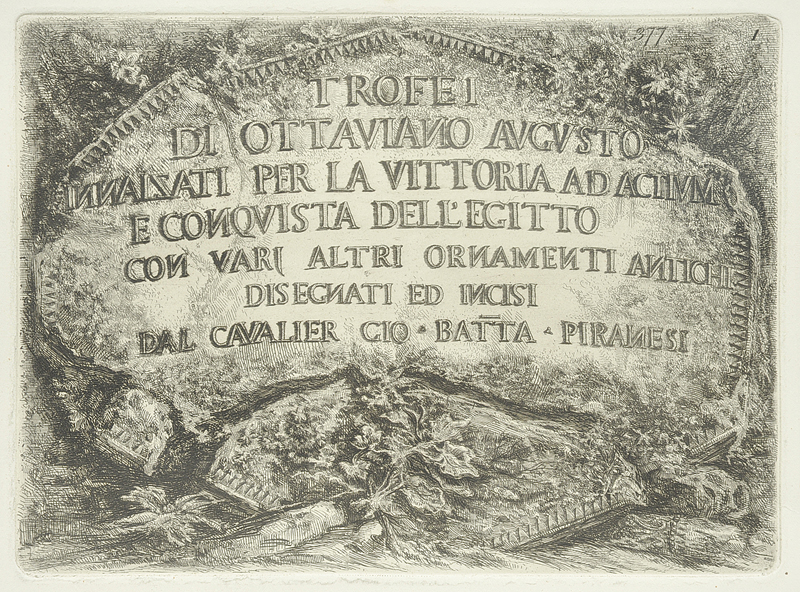 377 1
TROFEI
DI OTTAVIANO AVGVSTO
INNALZATI PER LA VITTORIA AD ACTIVM
E CONQVISTA DELL'EGITTO
CON VARJ ALTRI ORNAMENTI ANTICHI
DISEGNATI ED INCISI
DAL CAVALIER GIO · BATTA · PIRANESI